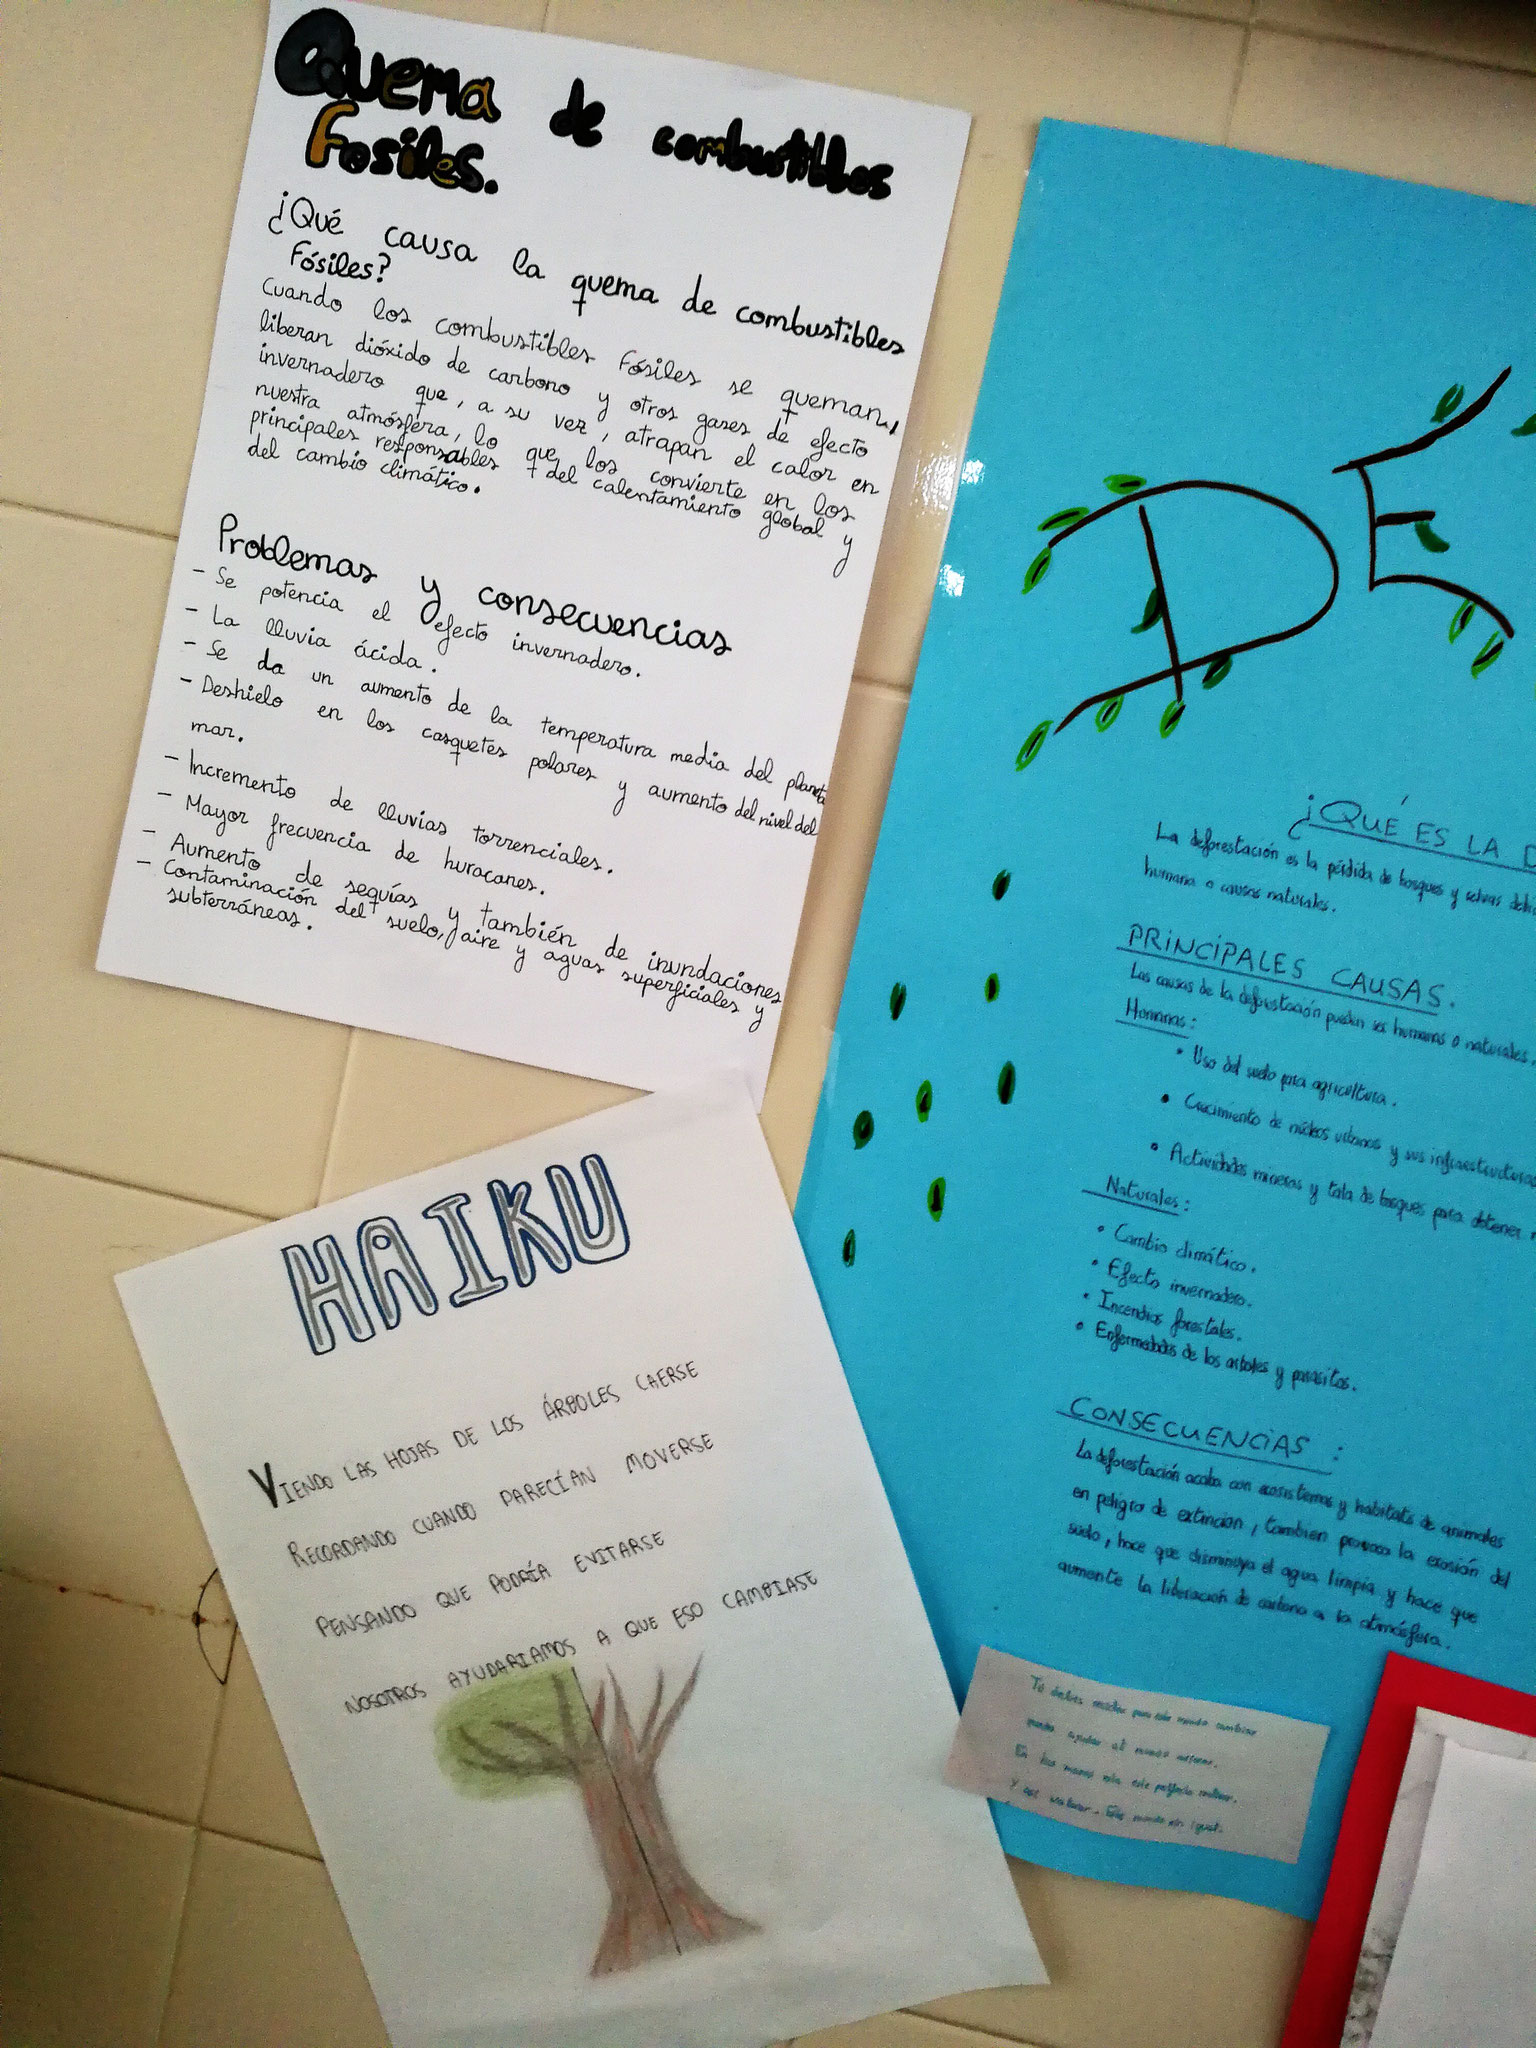 Quema de combustibles
Fosiles.
¿Qué causa la quema de combustibles
Fósiles?
Cuando los combustibles Fósiles se queman,
liberan dióxido de carbono y otros gases de efecto
invernadero que, a su vez, atrapan el calor en
nuestra atmósfera, lo que los convierte en los
principales responsables del calentamiento global y
del cambio climático.
Problemas y consecuencias
- Se potencia el efecto invernadero.
- La lluvia ácida.
- Se da un aumento de la temperatura media del planeta
- Deshielo en los casquetes polares y aumento del nivel del
mar.
- Incremento de lluvias torrenciales.
- Mayor frecuencia de huracanes.
- Aumento de sequías y también de inundaciones
- Contaminación del suelo, aire y aguas superficiales y
subterráneas.
HAIKU
VIENDO LAS HOJAS DE LOS ÁRBOLES CAERSE
RECORDANDO CUANDO PARECÍAN MOVERSE
PENSANDO QUE PODRÍA EVITARSE
NOSOTROS AYUDARIAMOS A QUE ESO CAMBIASE
DE
¿QUÉ ES LA D
La deforestación es la pérdida de bosques y selvas debi
humana o causas naturales.
PRINCIPALES CAUSAS.
Las causas de la deforestación pueden ser humanas o naturales.
Humanas:
• Uso del suelo para agricultura.
• Crecimiento de núcleos urbanos y sus infraestructuras
• Actividades mineras y tala de bosques para obtener
Naturales:
• Cambio climático.
• Efecto invernadero.
• Incendios forestales.
• Enfermedades de los arboles y parásitos.
CONSECUENCIAS:
La deforestación acaba con ecosistemas y habitats de animales
en peligro de extincion, tambien provoca la erosión del
suelo, hace que disminuya el agua limpia y hace que
aumente la liberación de carbono a la atmósfera.
Tú debes para este mundo cambiar
ayudar al mundo
En tus manos está este
Este mundo sin igual.